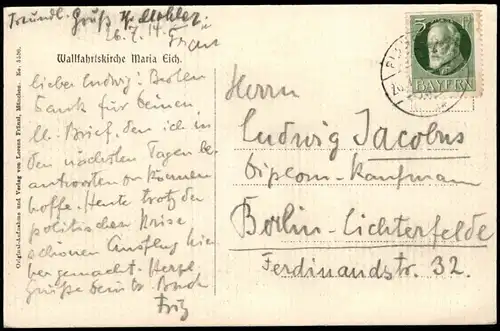 Freundl. Gruß
26.7.14. Frau
Wallfahrtskirche Maria Eich.
lieber Ludwig! Besten
Dank für Deinen
lb. Brief, den ich in
den nächsten Tagen be-
antworten zu können
hoffe. Heute trotz der
politischen Krise
schönen Ausflug hier-
her gemacht. Herzl.
Grüße Dein tr. Bruder
Fritz
Herrn
Ludwig Jacobus
Diplom-Kaufmann
Berlin-Lichterfelde
Ferdinandstr. 32.
5 Pf
BAYERN
Original-Aufnahme und Verlag von Lorenz Fränzl, München. No. 3550.